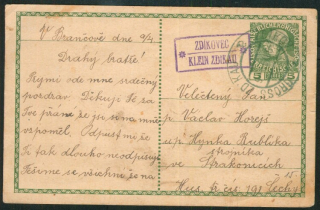 V Brančově dne 9/2
Drahý bratře!
Přijmi ode mne srdečný
pozdrav. Děkuji Ti za
Tvé přání že jsi na mne
vzpoměl. Odpusť mi že
Ti tak dlouho neodpisuji
Těšíme se, všechni že na
ZDIKOVEC
KLEIN ZDIKAU
5
Velectěný Pan
p Václav Horejš
u p Hynka Bubluka
ve Strakonicích
Hus. tř. čís. 191 Čechy